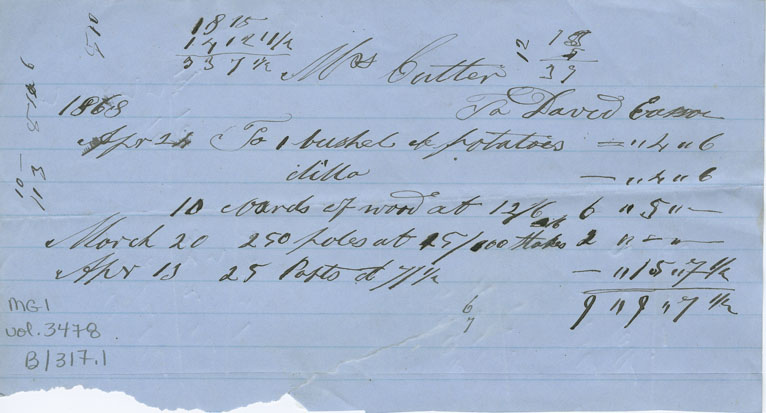 18 15
14 12 11/2
33 7 1/2
12
39
510
Mrs Cutter
1868
To David
Apr 24 To 1 bushel of potatoes — " 4 " 6
ditto — " 4 " 6
10 coards of wood at 12/6 6 " 5 " —
March 20 250 poles at 15/100 2 " — " —
Apr 13 25 Posts at 7 1/2 — " 15 " 7 1/2
9 " 9 " 7 1/2
6
7
10 —
113
MG1
vol. 3478
B/317.1